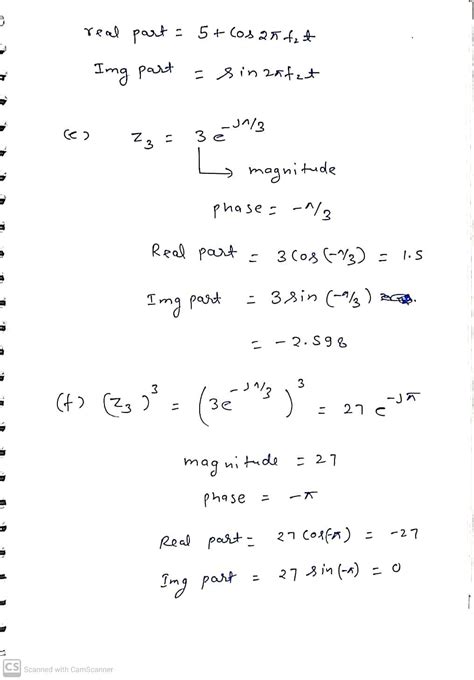 real part = 5 + cos 2π f₂t
Img part = sin 2π f₂t
(e) Z₃ = 3 e^(-jπ/3)
magnitude
phase = -π/3
Real part = 3 cos (-π/3) = 1.5
Img part = 3 sin (-π/3)
= -2.598
(f) (Z₃)³ = (3e^(-jπ/3))³ = 27 e^(-jπ)
magnitude = 27
phase = -π
Real part = 27 cos(-π) = -27
Img part = 27 sin (-π) = 0
CS Scanned with CamScanner